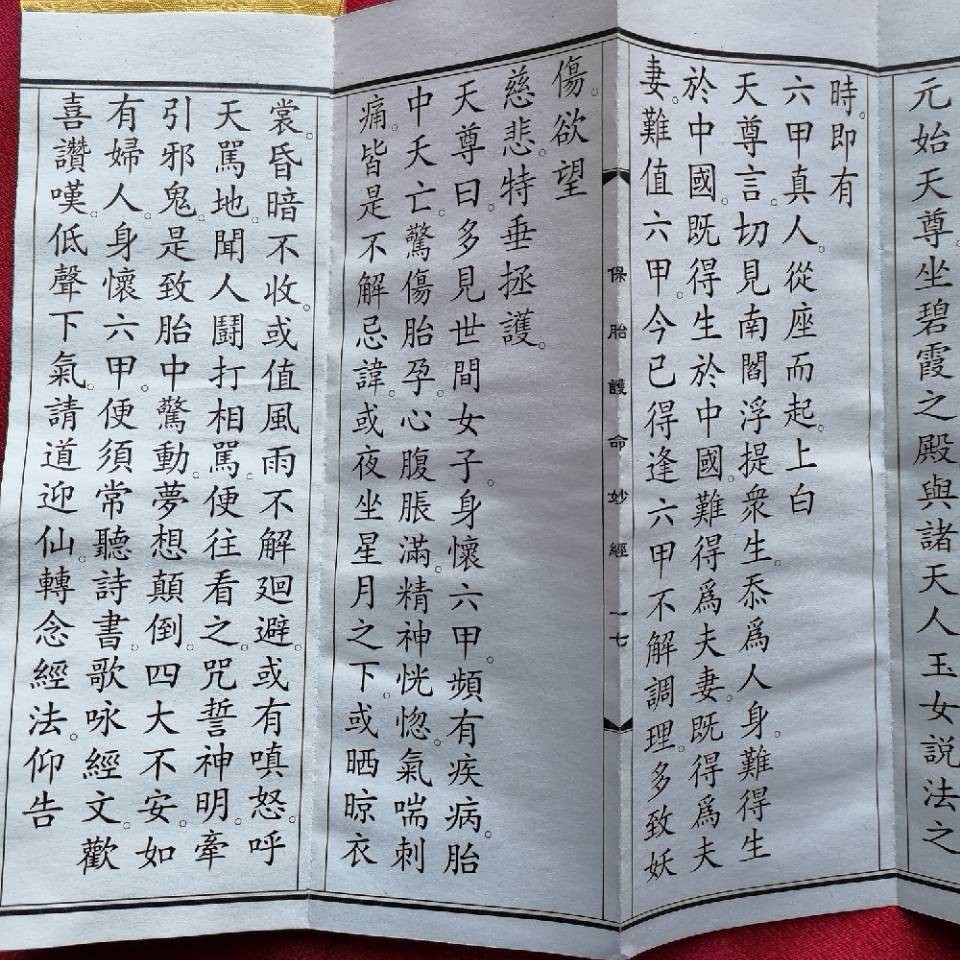 元始天尊。坐碧霞之殿與諸天人玉女説法之
時。即有
六甲真人。從座而起。上白
天尊言。切見南閻浮提衆生。忝爲人身。難得生
於中國。既得生於中國。難得爲夫妻。既得爲夫
妻。難值六甲。今已得逢六甲不解調理。多致妖
保胎護命妙經 一七
傷。欲望
慈悲。特垂拯護。
天尊曰。多見世間女子。身懷六甲。頻有疾病。胎
中夭亡。驚傷胎孕。心腹脹滿。精神恍惚。氣喘刺
痛。皆是不解忌諱。或夜坐星月之下。或晒晾衣
裳。昏暗不收。或值風雨不解迴避。或有嗔怒。呼
天駡地。聞人鬪打相駡。便往看之。咒誓神明。牽
引邪鬼。是致胎中驚動。夢想顛倒。四大不安。如
有婦人。身懷六甲。便須常聽詩書。歌咏經文。歡
喜讚嘆。低聲下氣。請道迎仙。轉念經法。仰告